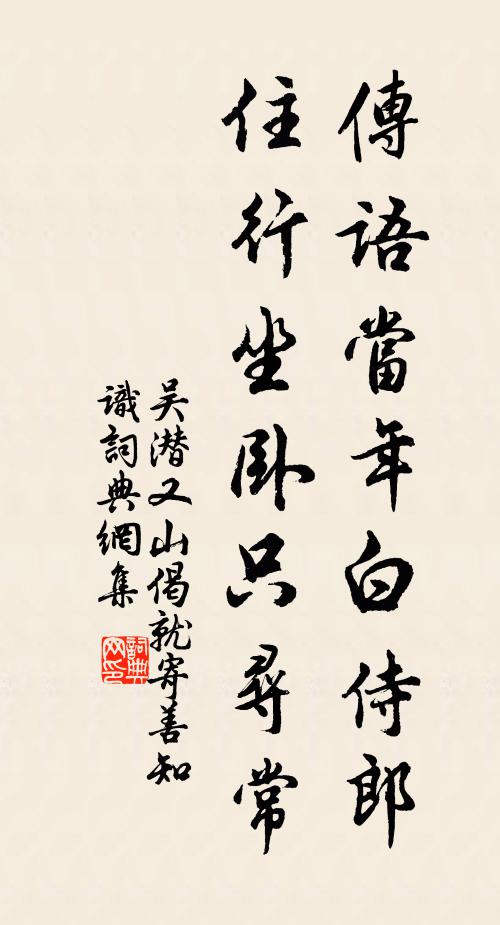 傳語當年白侍郎
住行坐臥只尋常
吴潜又山偈就寄善知
識詞典網集
詞典網印